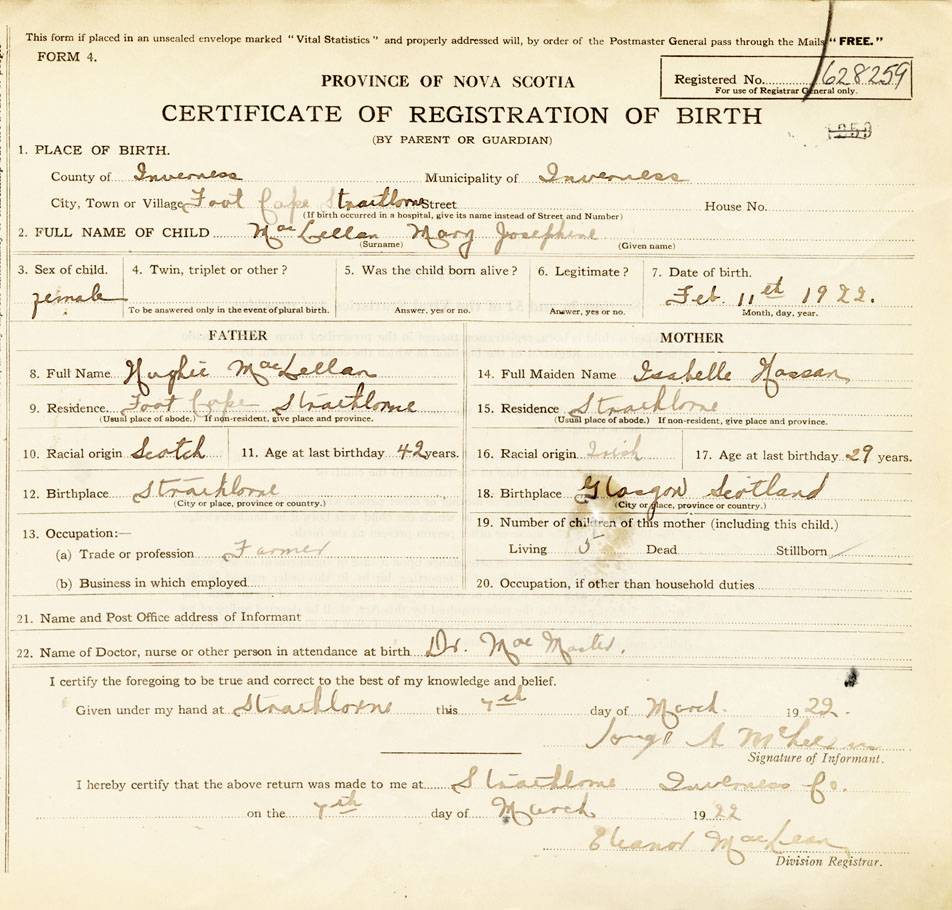 This form if placed in an unsealed envelope marked "Vital Statistics" and properly addressed will, by order of the Postmaster General pass through the Mails "FREE."
FORM 4.
Registered No. 628259
For use of Registrar General only.
PROVINCE OF NOVA SCOTIA
CERTIFICATE OF REGISTRATION OF BIRTH
(BY PARENT OR GUARDIAN)
1. PLACE OF BIRTH.
County of Inverness Municipality of Inverness
City, Town or Village Foot Cape Strathlorne Street House No.
(If birth occurred in a hospital, give its name instead of Street and Number)
2. FULL NAME OF CHILD MacLellan Mary Josephine
(Surname) (Given name)
3. Sex of child. 4. Twin, triplet or other? 5. Was the child born alive? 6. Legitimate? 7. Date of birth.
female Feb. 11th 1922.
To be answered only in the event of plural birth. Answer, yes or no. Answer, yes or no. Month, day, year.
FATHER MOTHER
8. Full Name Hughie MacLellan 14. Full Maiden Name Isabelle Hassan
9. Residence Foot Cape Strathlorne 15. Residence Strathlorne
(Usual place of abode.) If non-resident, give place and province. (Usual place of abode.) If non-resident, give place and province.
10. Racial origin Scotch 11. Age at last birthday 42 years. 16. Racial origin Irish 17. Age at last birthday 29 years.
12. Birthplace Strathlorne 18. Birthplace Glasgow Scotland
(City or place, province or country.) (City or place, province or country.)
13. Occupation:— 19. Number of children of this mother (including this child.)
(a) Trade or profession Farmer Living 5 Dead Stillborn
(b) Business in which employed 20. Occupation, if other than household duties
21. Name and Post Office address of Informant
22. Name of Doctor, nurse or other person in attendance at birth Dr. MacMaster.
I certify the foregoing to be true and correct to the best of my knowledge and belief.
Given under my hand at Strathlorne this 7th day of March 1922.
A
Signature of Informant.
I hereby certify that the above return was made to me at Strathlorne Inverness Co.
on the 7th day of March 1922
Eleanor MacLean
Division Registrar.